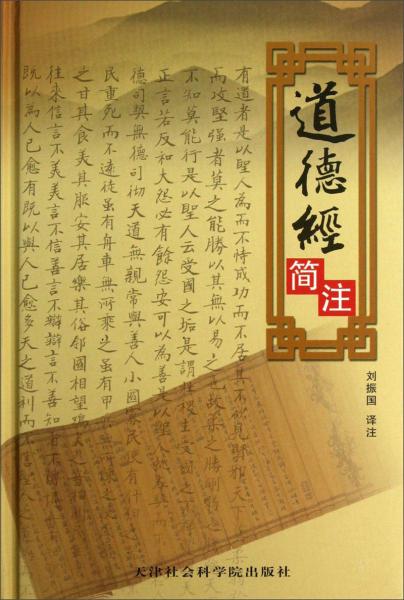 道德經
简注
刘振国 译注
有道者是以聖人為而不恃成功而不居其不欲見賢如天下
而攻堅強者莫之能勝以其無以易之也故柔之勝剛
不知莫能行是以聖人云受國之垢是謂社稷主受國之
正言若反和大怨必有餘怨安可以為善是以聖人執
德司契無德司彻天道無親常與善人小國寡民使有什
民重死而不遠徙雖有舟車無所乘之雖有甲兵無所陳之使
之甘其食美其服安其居樂其俗鄰國相望雞犬之聲相
往來信言不美美言不信善言不辯辯言不善知者不博
既以為人己愈有既以與人己愈多天之道利而不害聖人之
天津社会科学院出版社